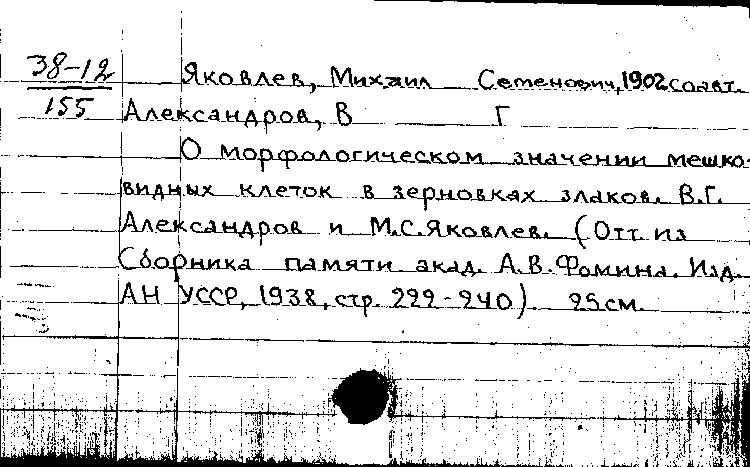 38-12 Яковлев, Михаил Семенович, 1902 соавт.
155 Александров, В Г
О морфологическом значении мешко-
видных клеток в зерновках злаков. В.Г.
Александров и М.С.Яковлев. (Отт. из
Сборника памяти акад. А.В.Фомина. Изд.
АН УССР, 1938, стр. 222-240) 25см.